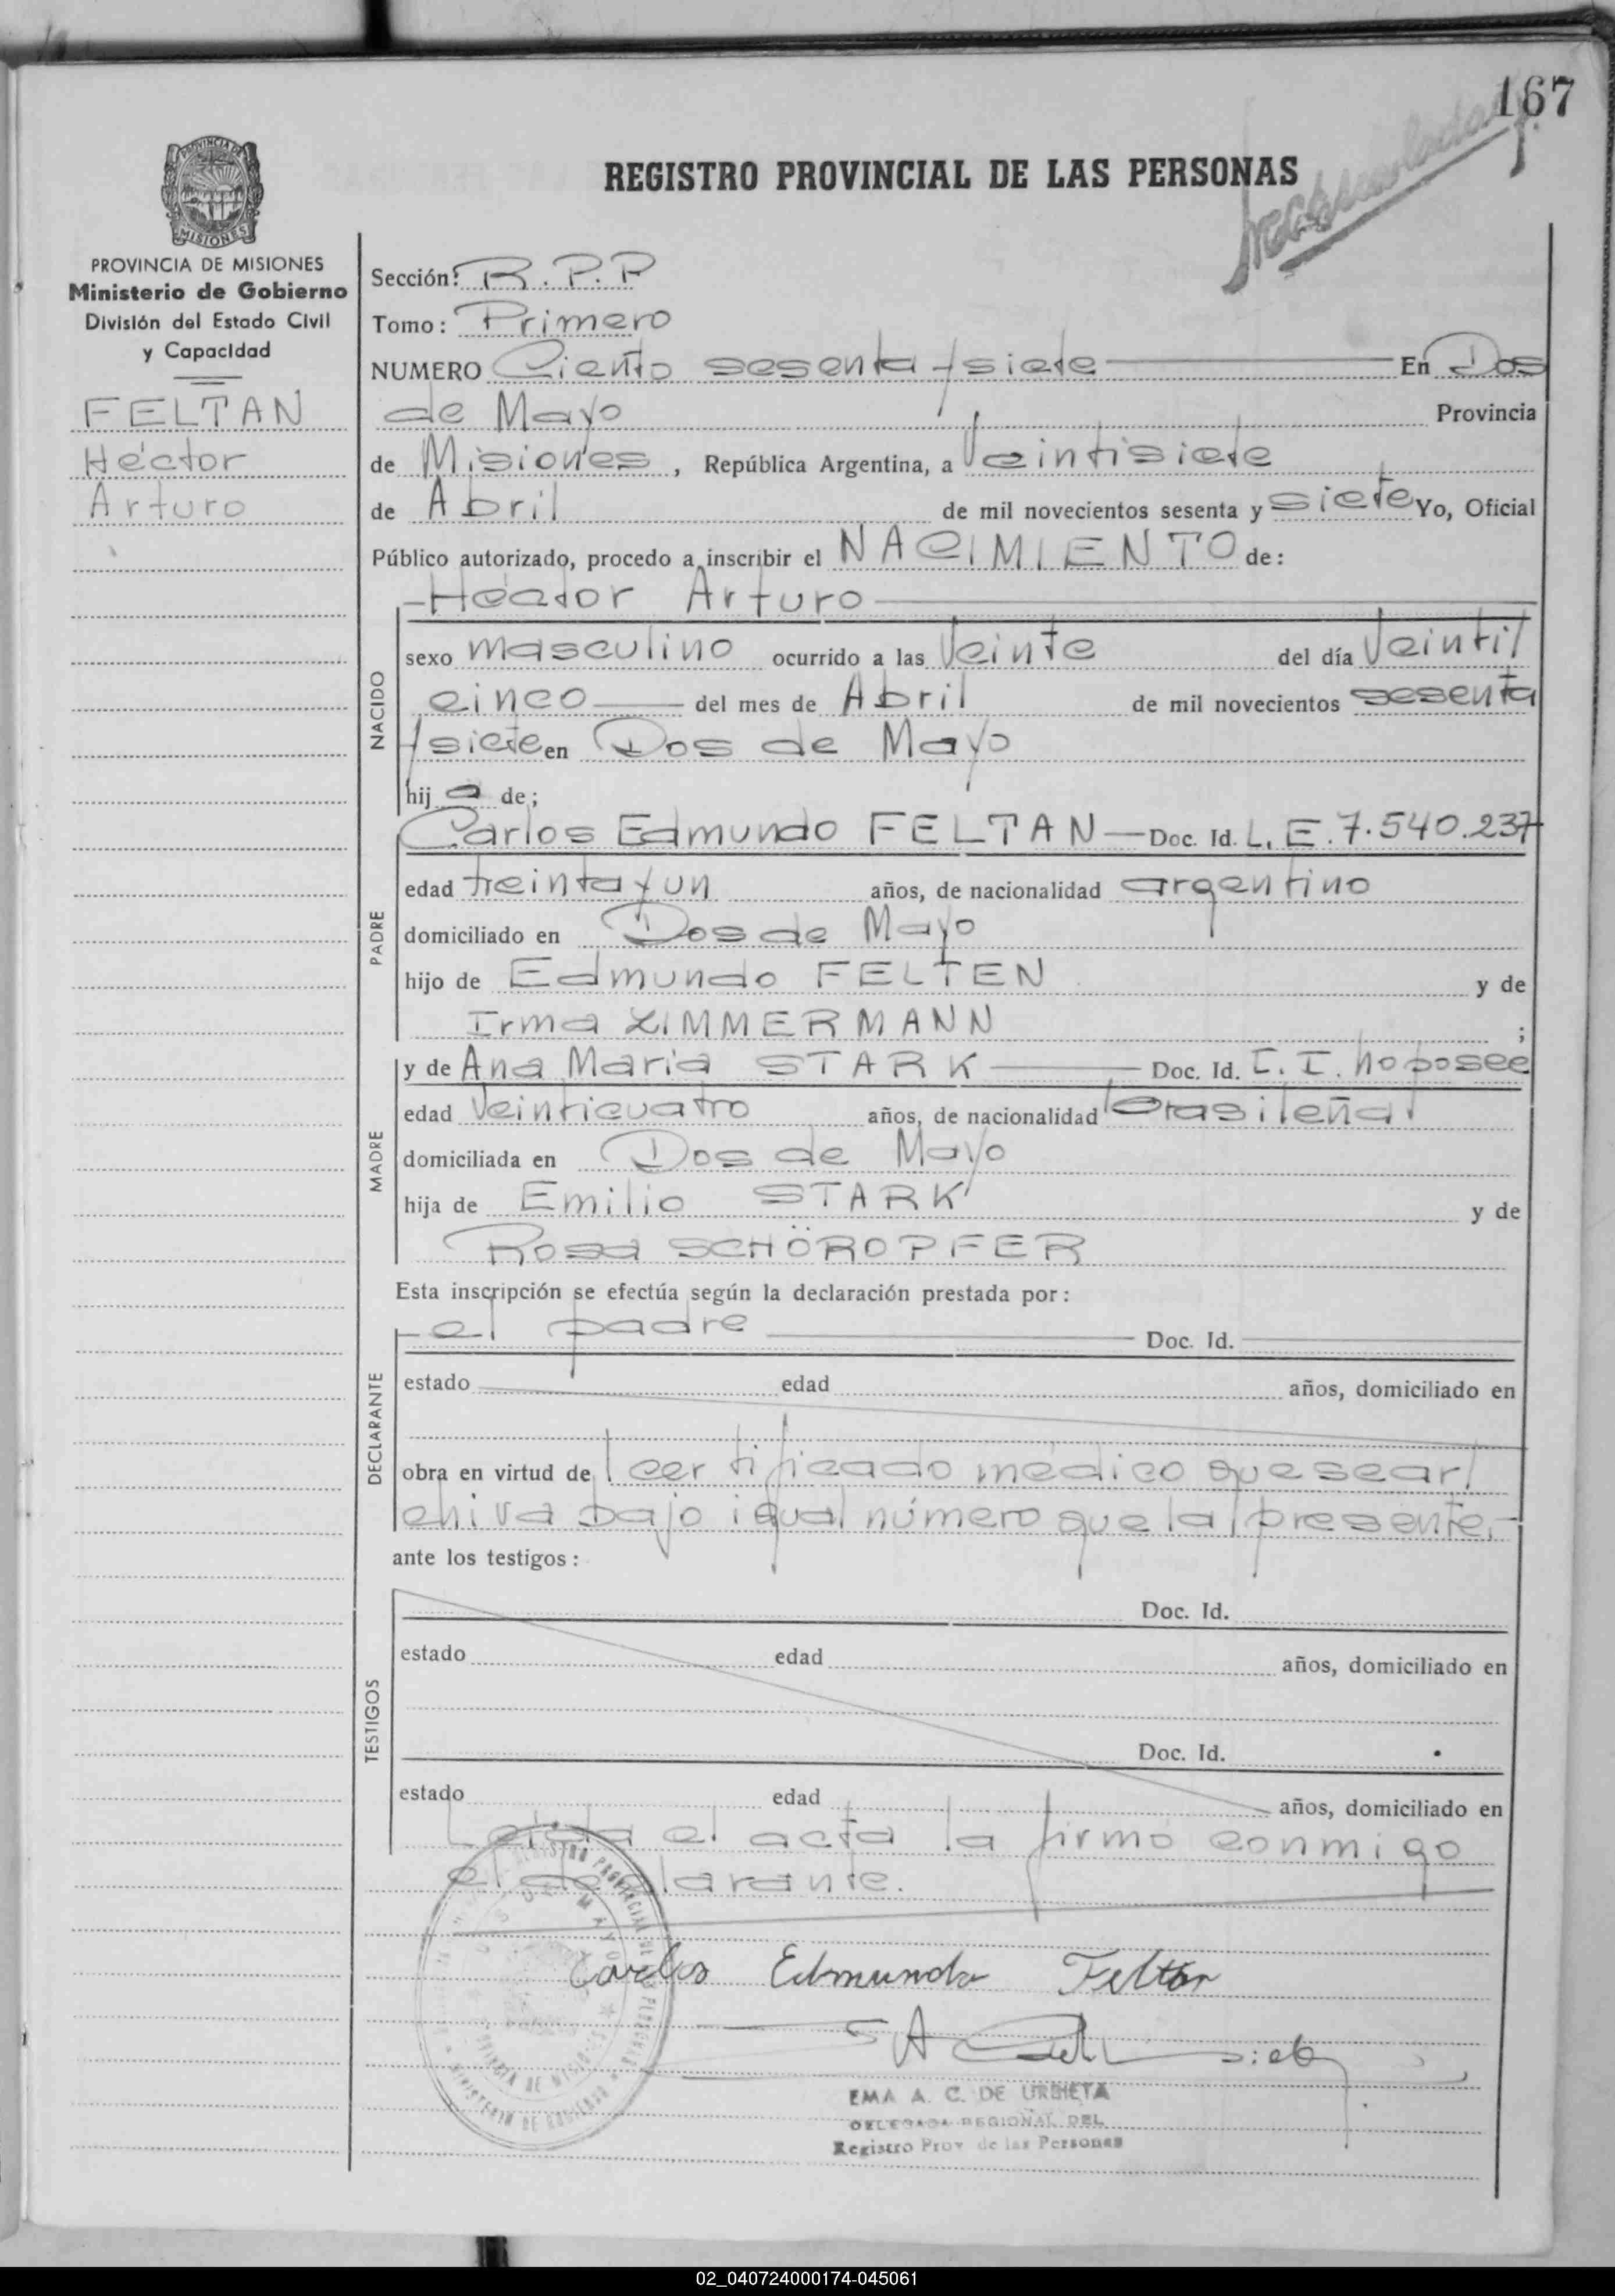 167
REGISTRO PROVINCIAL DE LAS PERSONAS
PROVINCIA DE MISIONES
Ministerio de Gobierno
División del Estado Civil
y Capacidad
FELTAN
Héctor
Arturo
Sección: R.P.P
Tomo: Primero
NUMERO Ciento sesenta y siete En Dos
de Mayo Provincia
de Misiones, República Argentina, a Veintisiete
de Abril de mil novecientos sesenta y siete Yo, Oficial
Público autorizado, procedo a inscribir el NACIMIENTO de:
Héctor Arturo
NACIDO
sexo masculino ocurrido a las Veinte del día Veinti/
cinco del mes de Abril de mil novecientos sesenta
y siete en Dos de Mayo
hij o de;
PADRE
Carlos Edmundo FELTAN Doc. Id. L.E. 7.540.237
edad treinta y un años, de nacionalidad argentino
domiciliado en Dos de Mayo
hijo de Edmundo FELTEN y de
Irma ZIMMERMANN ;
MADRE
y de Ana Maria STARK Doc. Id. C.I. no posee
edad Veinticuatro años, de nacionalidad brasileña
domiciliada en Dos de Mayo
hija de Emilio STARK y de
Rosa SCHÖROPFER
Esta inscripción se efectúa según la declaración prestada por:
DECLARANTE
el padre Doc. Id.
estado edad años, domiciliado en
obra en virtud de certificado médico que se ar/
chiva bajo igual número que la presente.-
ante los testigos:
TESTIGOS
Doc. Id.
estado edad años, domiciliado en
Doc. Id.
estado edad años, domiciliado en
Leida el acta la firmó conmigo
el declarante.
Carlos Edmundo Feltan
EMA A. C. DE URBIETA
DELEGADA REGIONAL DEL
Registro Prov de las Personas
02_040724000174-045061